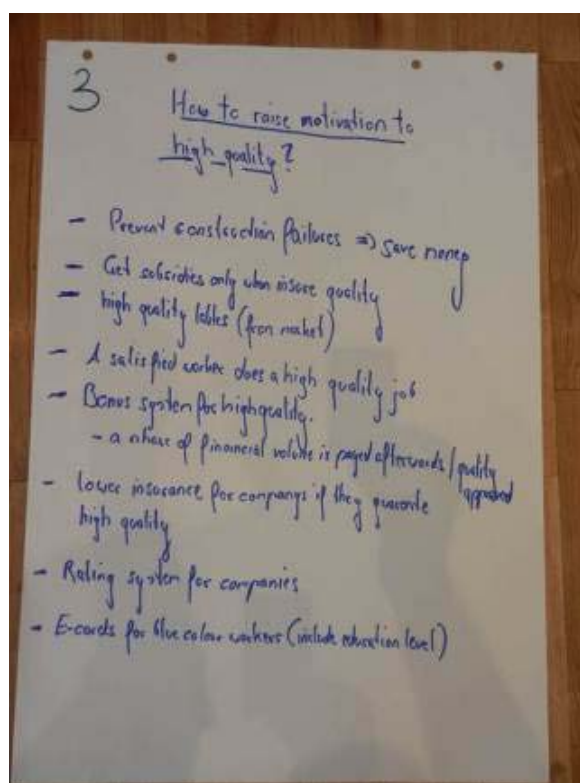 3
How to raise motivation to
high quality?
- Prevent construction failures => save money
- Get subsidies only when insure quality
- high quality lables (from market)
- A satisfied worker does a high quality job
- Bonus system for high quality.
- a share of financial volume is payed afterwords / quality
approved
- lower insurance for companys if they
high quality
- Rating system for companies
- E-cards for blue colour workers (include education level)